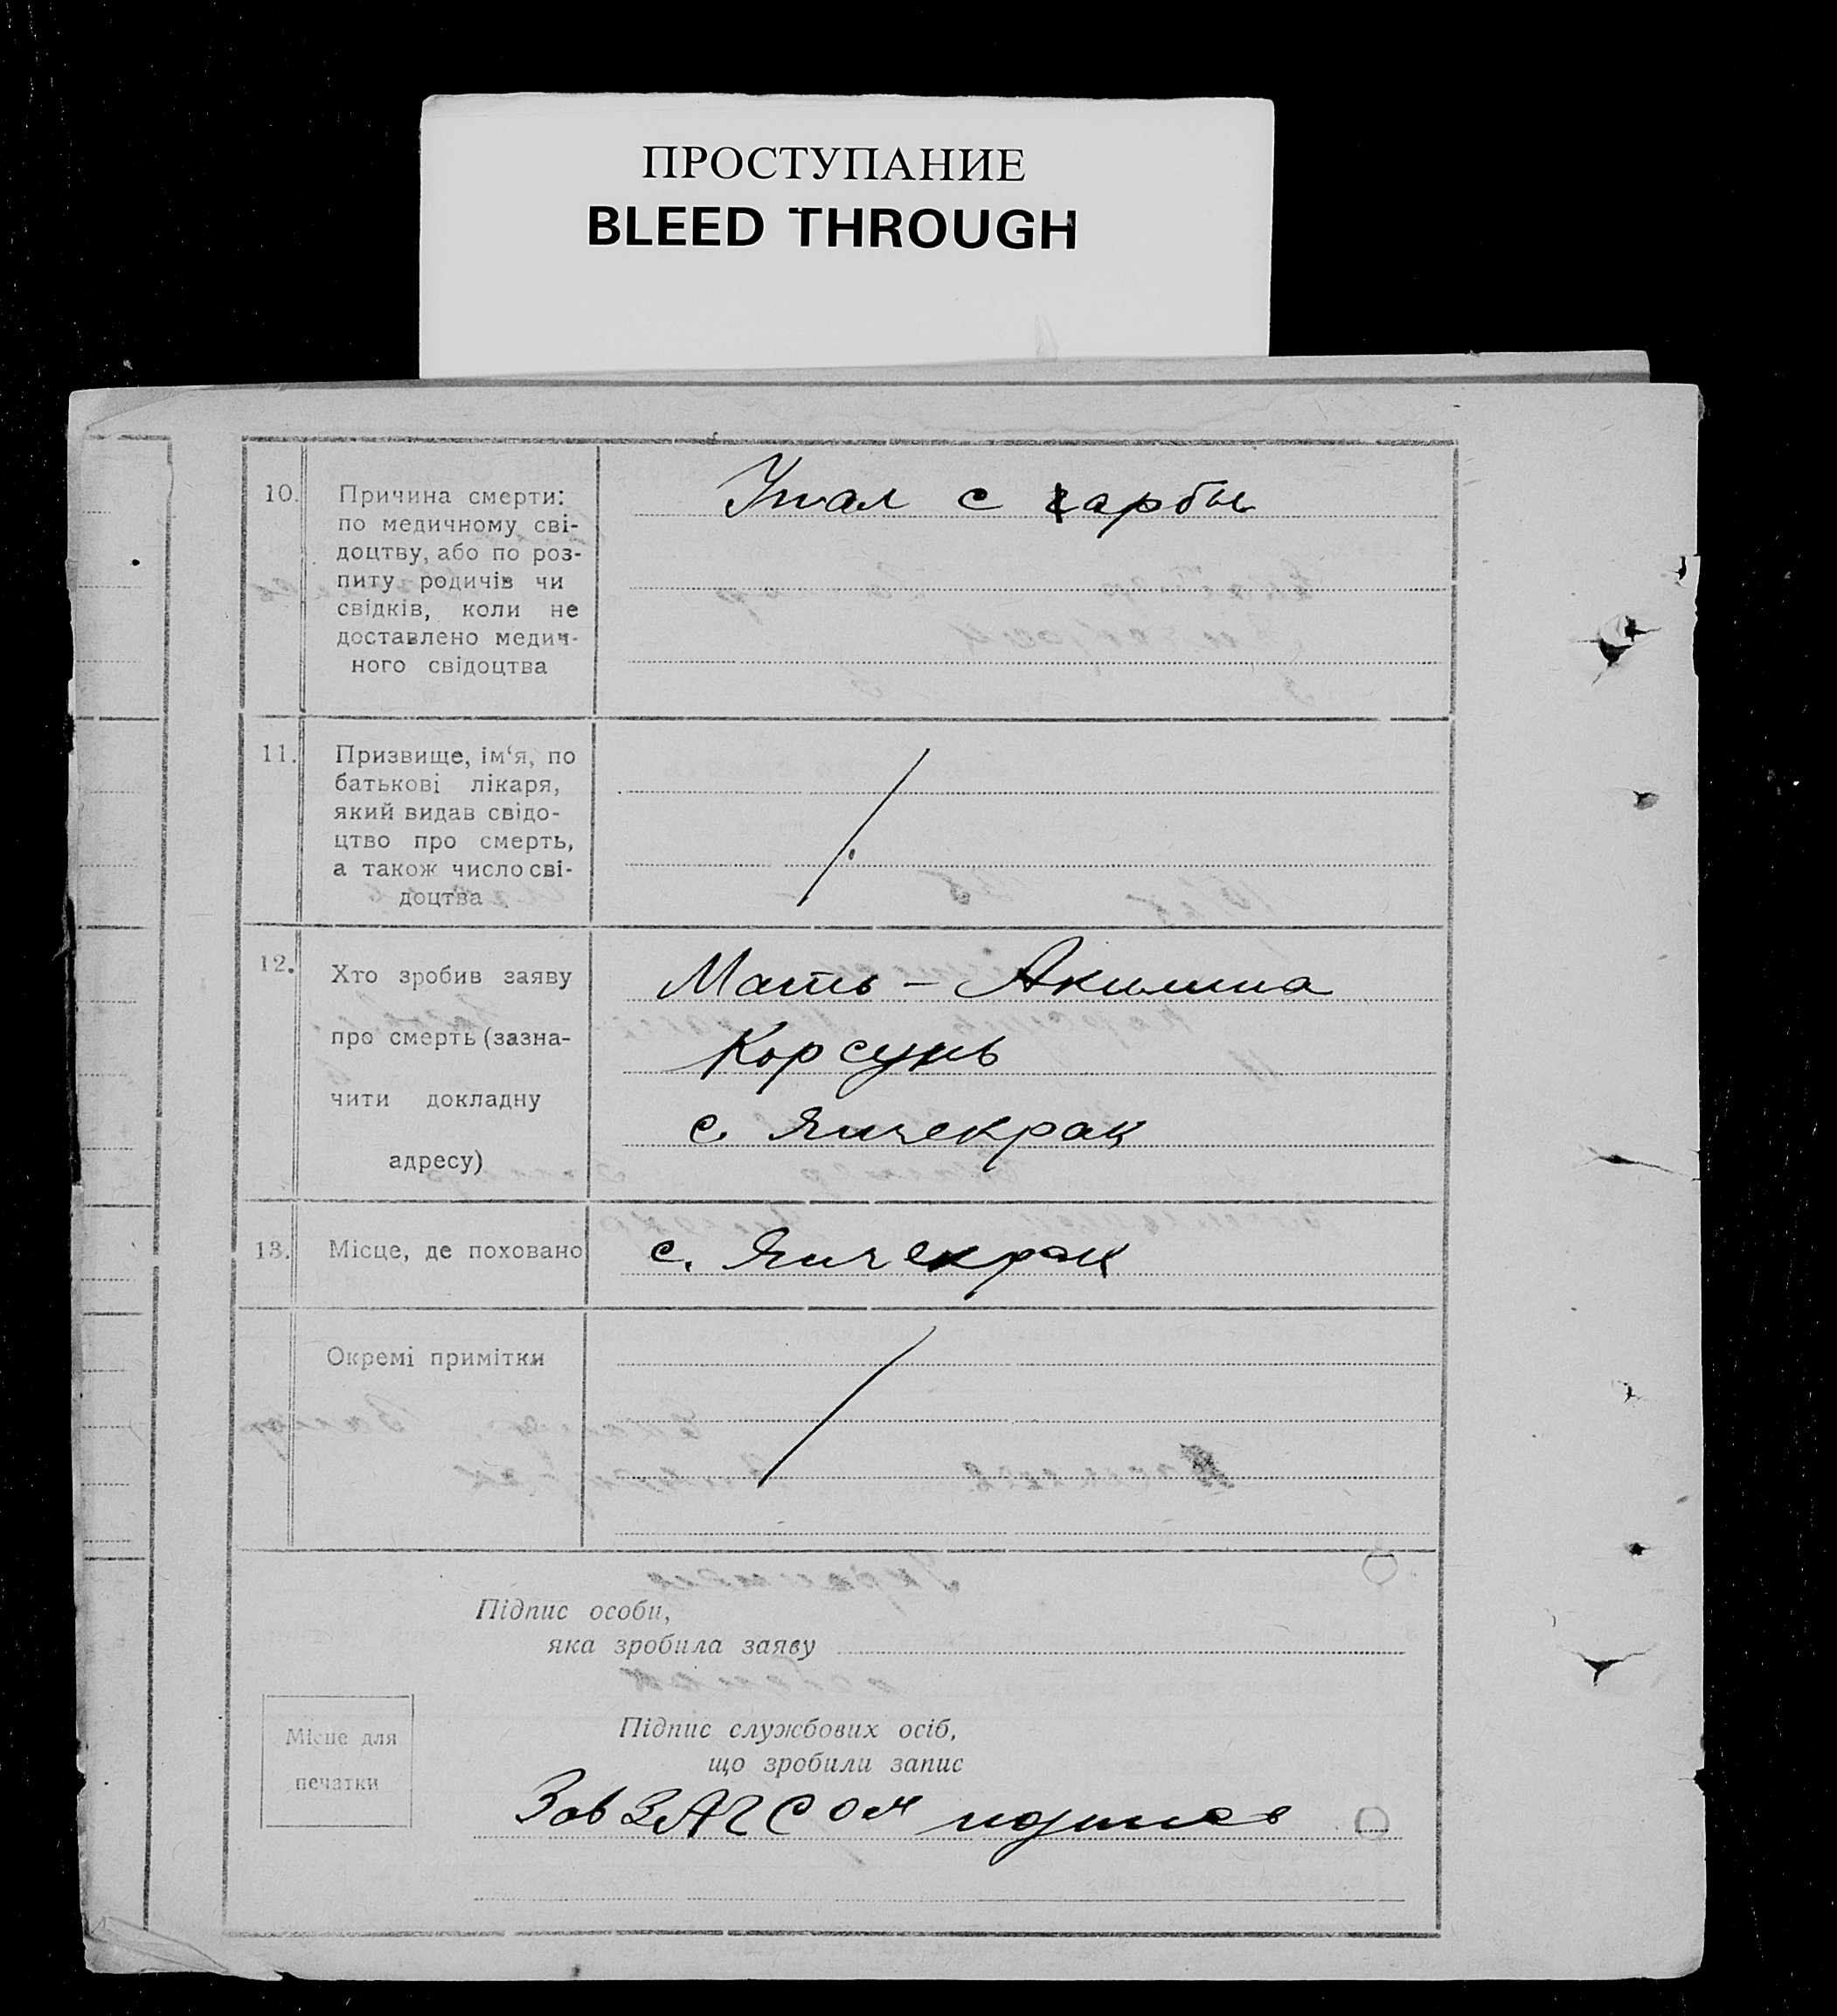 ПРОСТУПАНИЕ
BLEED THROUGH
10. Причина смерти:
по медичному сві-
доцтву, або по роз-
питу родичів чи
свідків, коли не
доставлено медич-
ного свідоцтва
Упал с гарбы
11. Призвище, ім‘я, по
батькові лікаря,
який видав свідо-
цтво про смерть,
а також число сві-
доцтва
12. Хто зробив заяву
про смерть (зазна-
чити докладну
адресу)
Мать – Акилина
Корсунь
с. Янчекрак
13. Місце, де поховано
с. Янчекрак
Окремі примітки
Підпис особи,
яка зробила заяву
Місце для
печатки
Підпис службових осіб,
що зробили запис
Зав ЗАГСом подпись